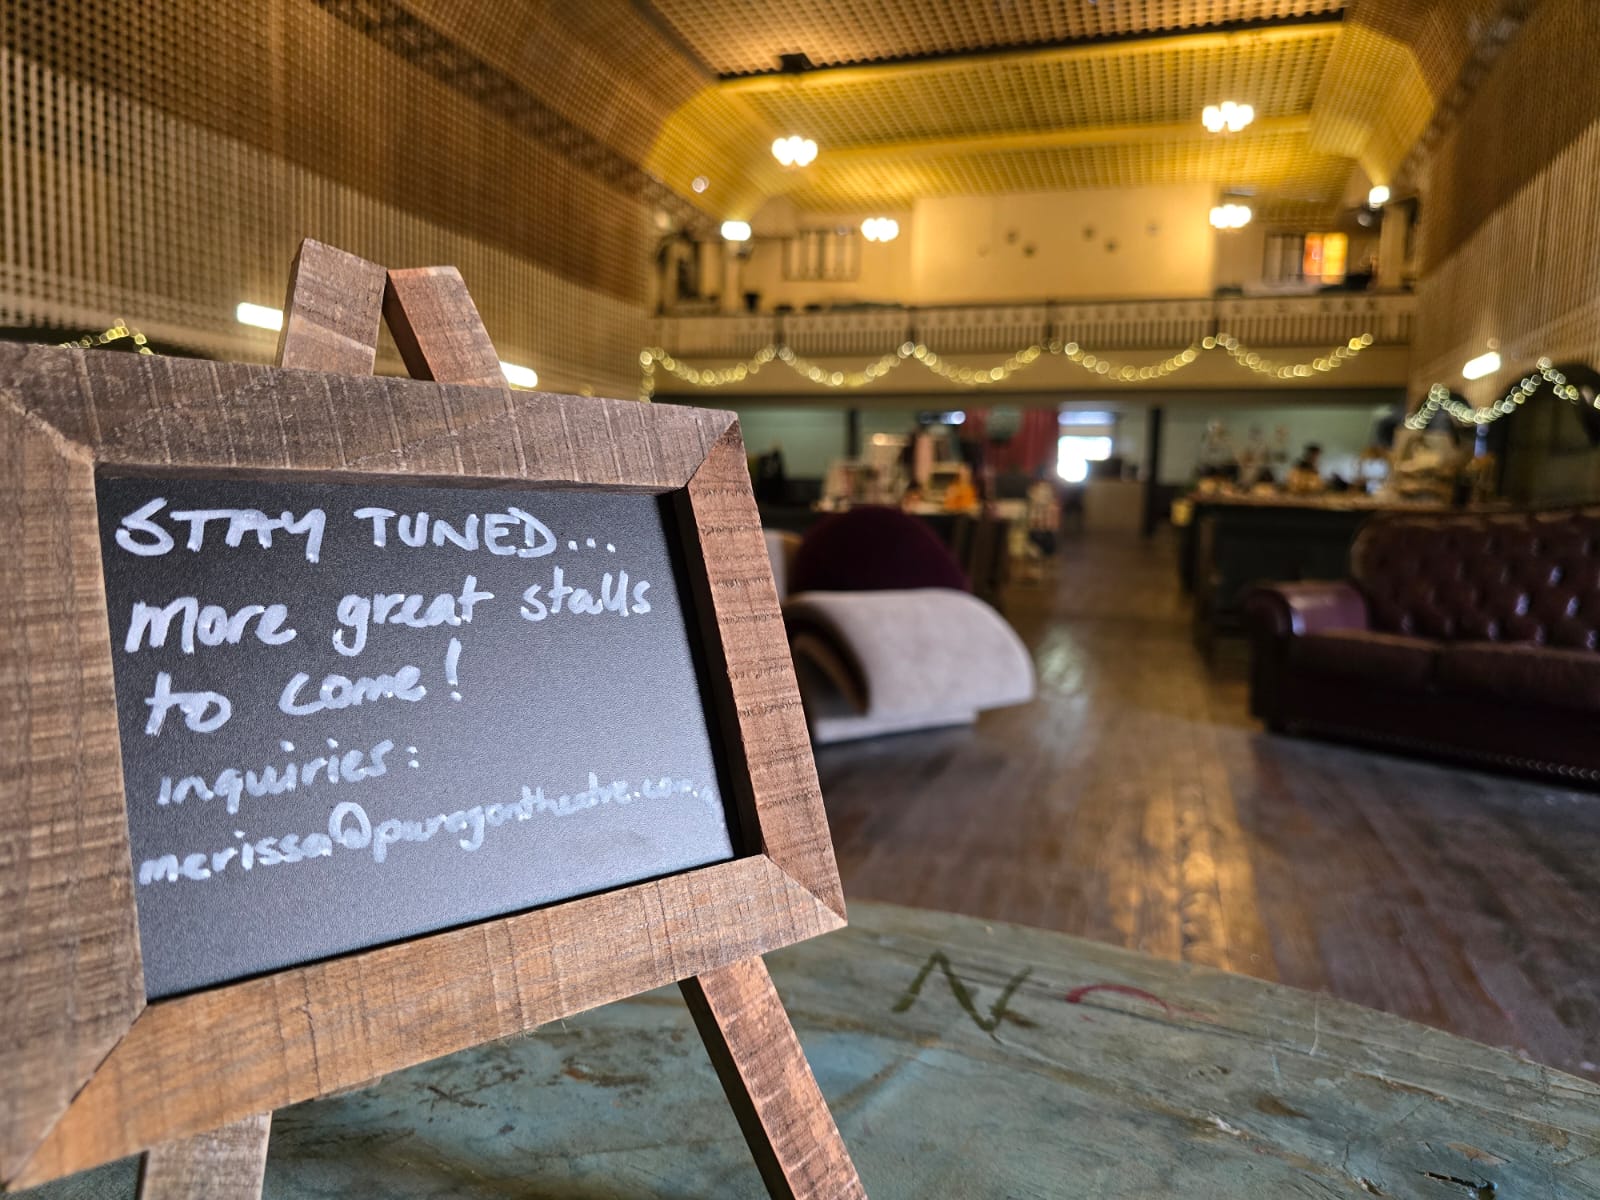 STAY TUNED...
more great stalls
to come!
inquiries:
merissa@paragontheatre.com.
N